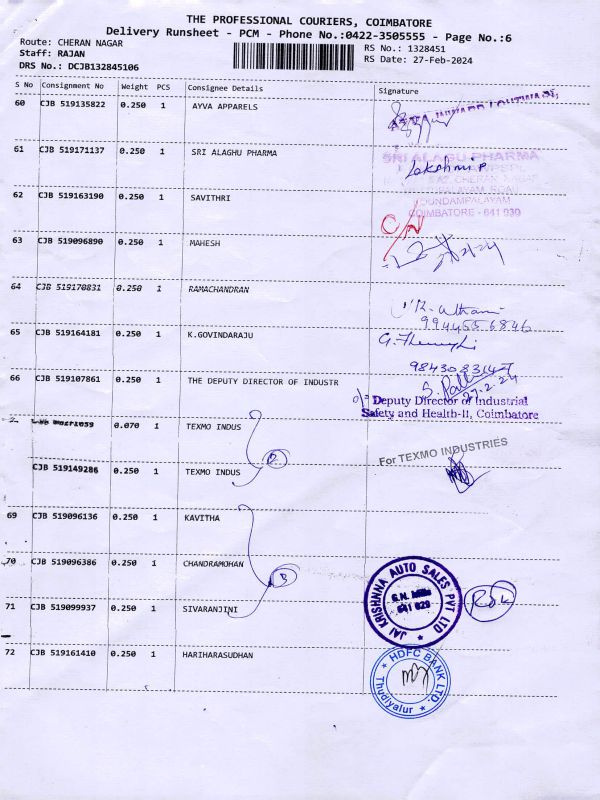 THE PROFESSIONAL COURIERS, COIMBATORE
Delivery Runsheet - PCM - Phone No.:0422-3505555 - Page No.:6
Route: CHERAN NAGAR
RS No.: 1328451
Staff: RAJAN
RS Date: 27-Feb-2024
DRS No.: DCJB132845106
S No Consignment No Weight PCS Consignee Details Signature
60 CJB 519135822 0.250 1 AYVA APPARELS
61 CJB 519171137 0.250 1 SRI ALAGHU PHARMA
SRI ALAGU PHARMA
Lakshmi P
62 CJB 519163190 0.250 1 SAVITHRI
COIMBATORE - 641 030
C/N
63 CJB 519096890 0.250 1 MAHESH
64 CJB 519170831 0.250 1 RAMACHANDRAN
9944556846
65 CJB 519164181 0.250 1 K.GOVINDARAJU
9843083147
66 CJB 519107861 0.250 1 THE DEPUTY DIRECTOR OF INDUSTR
27.2.24
Deputy Director of Industrial
Safety and Health-II, Coimbatore
0.070 1 TEXMO INDUS
For TEXMO INDUSTRIES
CJB 519149286 0.250 1 TEXMO INDUS
2
69 CJB 519096136 0.250 1 KAVITHA
70 CJB 519096386 0.250 1 CHANDRAMOHAN
3
JAI KRISHNNA AUTO SALES PVT LTD
S.N. Mills
641 029
71 CJB 519099937 0.250 1 SIVARANJINI
72 CJB 519161410 0.250 1 HARIHARASUDHAN
HDFC BANK LTD.
Thudiyalur